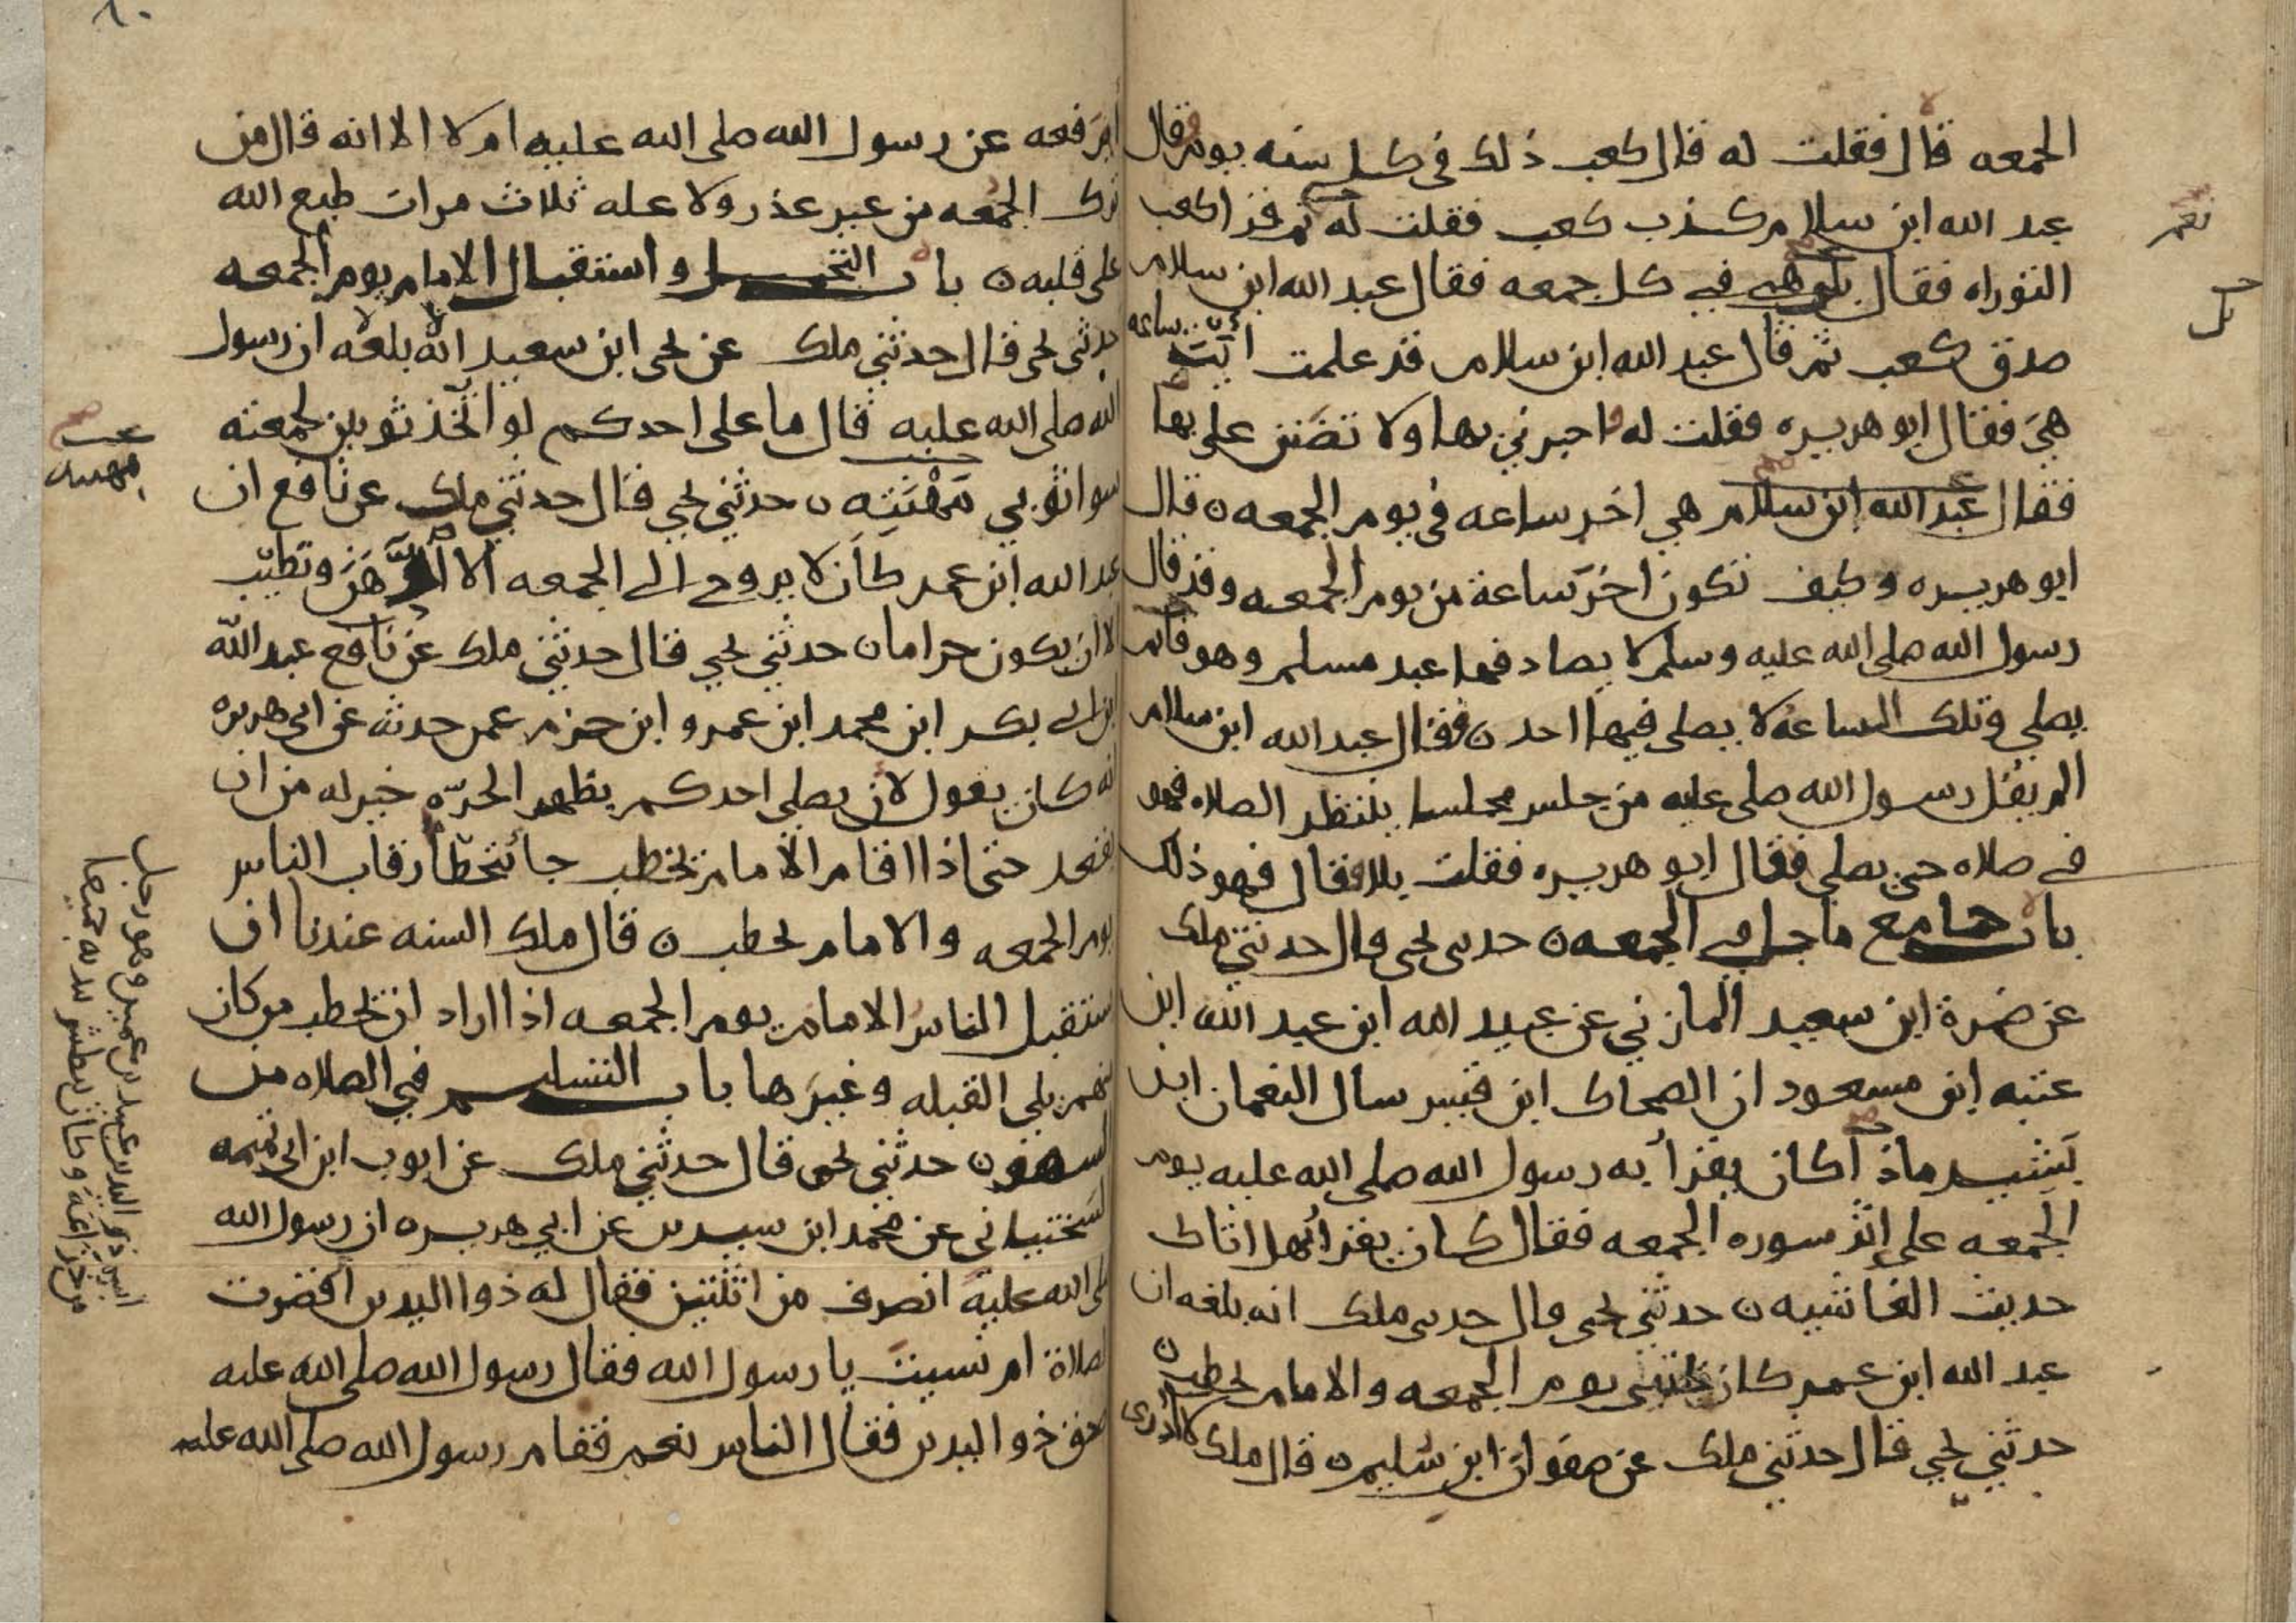 الجمعه قال فقلت له قال كعب ذلك في كل سنه يوم قال
عبد الله ابن سلام كذب كعب فقلت له ثم قرا كعب
نعم
التوراه فقال بلى هي في كل جمعه فقال عبد الله ابن سلام
بل
صدق كعب ثم قال عبد الله ابن سلام قد علمت ايت ساعه
هي فقال ابو هريره فقلت له اخبرني بها ولا تضنن علي بها
فقال عبد الله ابن سلام هي اخر ساعه في يوم الجمعه ن قال
ابو هريره وكيف تكون اخر ساعة من يوم الجمعه وقد قال
رسول الله صلى الله عليه وسلم لا يصادفها عبد مسلم وهو قايم
يصلي وتلك الساعة لا يصلى فيها احد ن فقال عبد الله ابن سلام
الم يقل رسول الله صلى عليه من جلس مجلسا ينتظر الصلاه فهو
في صلاه حتى يصلي فقال ابو هريره فقلت بلا فقال فهو ذلك
باب جامع ما جا في الجمعه ن حدثني يحيى قال حدثني ملك
عن ضمرة ابن سعيد المازني عن عبيد الله ابن عبد الله ابن
عتبه ابن مسعود ان الضحاك ابن قيس سال النعمان ابن
بشير ماذا كان يقرأ به رسول الله صلى الله عليه يوم
الجمعه على إثر سوره الجمعه فقال كان يقرأ هل اتاك
حديث الغاشيه ن حدثني يحيى قال حدثني ملك انه بلغه ان
عبد الله ابن عمر كان يحتبي يوم الجمعه والامام يخطب ن
حدثني يحيي قال حدثني ملك عن صفوان ابن سليم ن قال ملك لا أدري
أيرفعه عن رسول الله صلى الله عليه ام لا الا انه قال من
ترك الجمعه من غير عذر ولا عله ثلاث مرات طبع الله
على قلبه ن باب التخطي واستقبال الامام يوم الجمعه
حدثني يحيى قال حدثني ملك عن يحيى ابن سعيد انه بلغه ان رسول
الله صلى الله عليه قال ما على احدكم لو اتخذ ثوبين لجمعته
سوا ثوبي مهنته ن حدثني يحيي قال حدثني ملك عن نافع ان
مهنته
عبد الله ابن عمر كان لا يروح الى الجمعه الا ادهن وتطيب
الا ان يكون حراما ن حدثني يحيي قال حدثني ملك عن نافع عبد الله
ابن ابي بكر ابن محمد ابن عمرو ابن حزم عمن حدثه عن ابي هريره
انه كان يقول لان يصلي احدكم بظهر الحرّه خير له من ان
يقعد حتى اذا اقام الامام يخطب جا يتخطا رقاب الناس
يوم الجمعه والامام يخطب ن قال ملك السنه عندنا ان
يستقبل الناس الامام يوم الجمعه اذا اراد ان يخطب من كان
منهم يلي القبله وغيرها باب التسليم في الصلاه من
السهو ن حدثني يحيى قال حدثني ملك عن ايوب ابن ابي تميمه
السختياني عن محمد ابن سيرين عن ابي هريره ان رسول الله
صلى الله عليه انصرف من اثنتين فقال له ذوا اليدين أقصرت
الصلاة ام نسيت يا رسول الله فقال رسول الله صلى الله عليه
اصدق ذو اليدين فقال الناس نعم فقام رسول الله صلى الله عليه
اسم ذي اليدين عبيد بن عمير وهو رجل
من خزاعة وكان يبطش بيديه جميعا